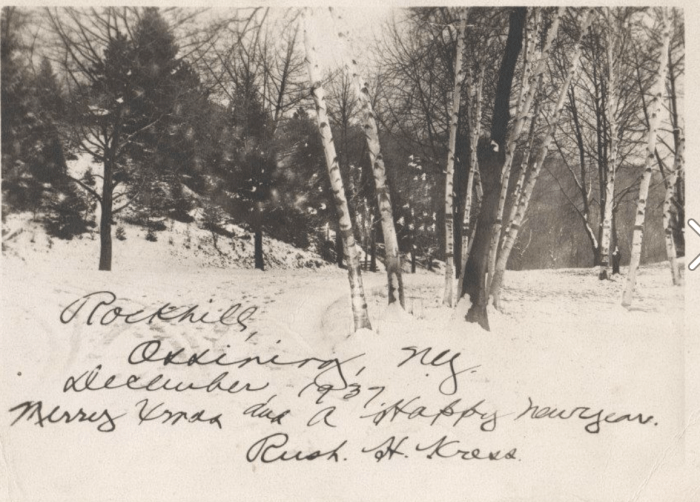 Rockhill,
Ossining, NY.
December, 1937
Merry Xmas and a Happy Newyear.
Rush. H. Kress.